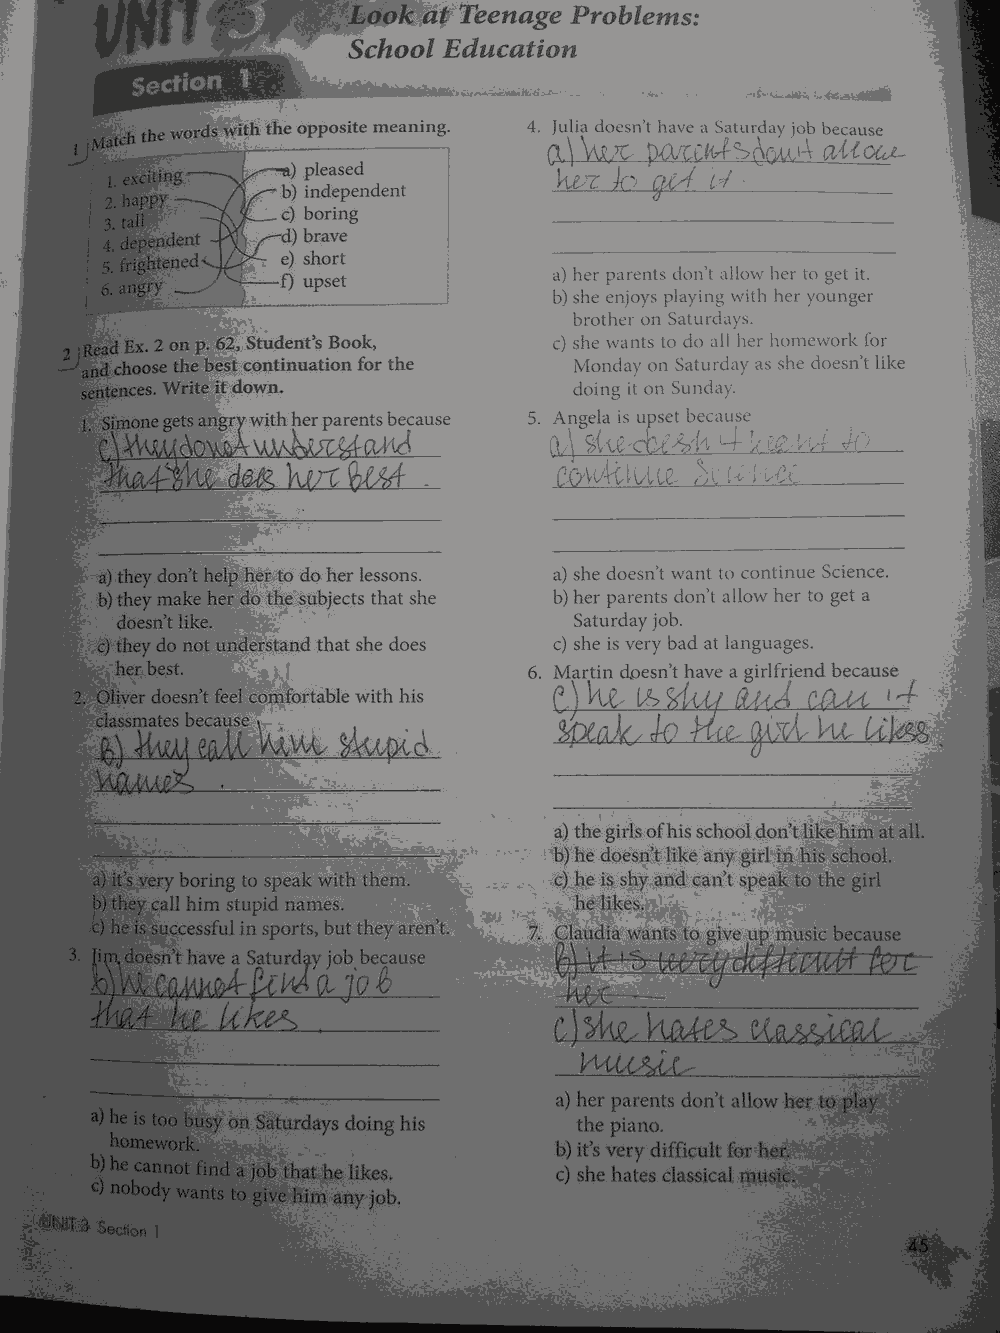 UNIT 3
Look at Teenage Problems:
School Education
Section 1
1 Match the words with the opposite meaning.
1. exciting
2. happy
3. tall
4. dependent
5. frightened
6. angry
a) pleased
b) independent
c) boring
d) brave
e) short
f) upset
2 Read Ex. 2 on p. 62, Student's Book,
and choose the best continuation for the
sentences. Write it down.
1. Simone gets angry with her parents because
c) they do not understand
that she does her best.
a) they don't help her to do her lessons.
b) they make her do the subjects that she
doesn't like.
c) they do not understand that she does
her best.
2. Oliver doesn't feel comfortable with his
classmates because
B) they call him stupid
names.
a) it's very boring to speak with them.
b) they call him stupid names.
c) he is successful in sports, but they aren't.
3. Jim doesn't have a Saturday job because
b) he cannot find a job
that he likes.
a) he is too busy on Saturdays doing his
homework.
b) he cannot find a job that he likes.
c) nobody wants to give him any job.
4. Julia doesn't have a Saturday job because
a) her parents don't allow
her to get it.
a) her parents don't allow her to get it.
b) she enjoys playing with her younger
brother on Saturdays.
c) she wants to do all her homework for
Monday on Saturday as she doesn't like
doing it on Sunday.
5. Angela is upset because
a) she doesn't want to
continue Science
a) she doesn't want to continue Science.
b) her parents don't allow her to get a
Saturday job.
c) she is very bad at languages.
6. Martin doesn't have a girlfriend because
c) he is shy and can't
speak to the girl he likes.
a) the girls of his school don't like him at all.
b) he doesn't like any girl in his school.
c) he is shy and can't speak to the girl
he likes.
7. Claudia wants to give up music because
b) it is very difficult for
her
c) she hates classical
music
a) her parents don't allow her to play
the piano.
b) it's very difficult for her.
c) she hates classical music.
UNIT 3 Section 1
45